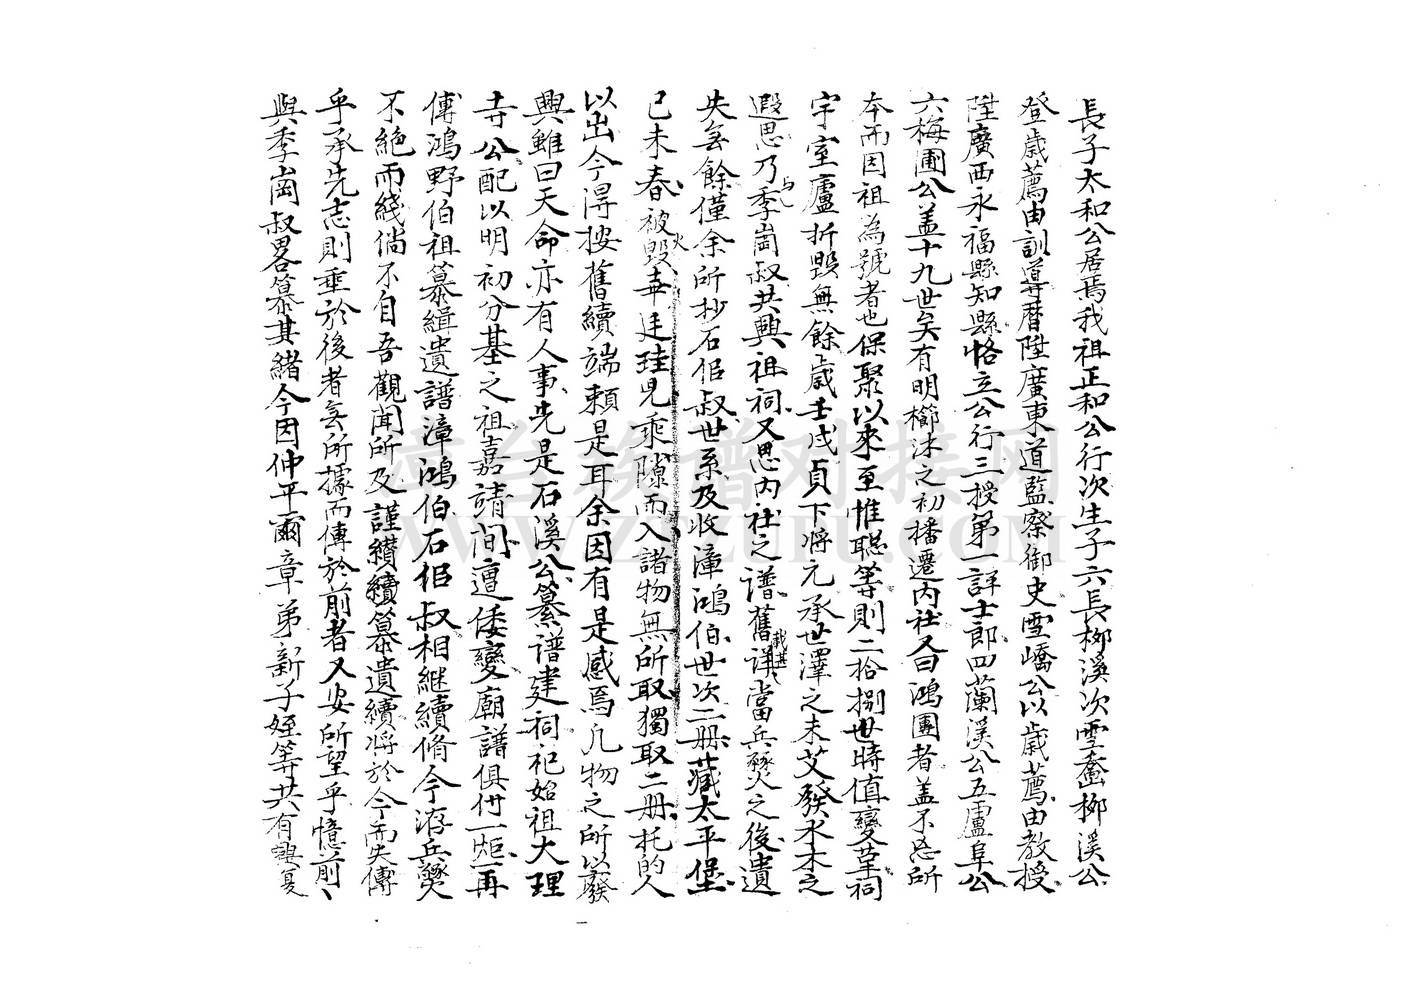 長子太和公居焉我祖正和公行次生子六長柳溪次雪奩柳溪公
登歲薦由訓導曆陞廣東道監察御史雪嶠公以歲薦由教授
陞廣西永福縣知縣恪立公行三授第一詳士郎四蘭溪公五盧阜公
六梅圃公盖十九世矣有明櫛沐之初播遷内社又曰鴻團者盖不忘所
本而因祖為號者也保聚以來至惟聪等則二拾捌世時值變革祠
宇室廬折毀無餘歲壬戌貞下將元承世澤之未艾發水木之
遐思乃与季崗叔共興祖祠又思内社之谱舊譜載甚詳當兵燹之後遺
失無餘僅余所抄石佀叔世系及收漳鴻伯世次二册藏太平堡
已未春被火毀幸廷珪兄乘隙而入諸物無所取獨取二册托的人
以出今得按舊續端賴是耳余因有是感焉凡物之所以發
興雖曰天命亦有人事先是石溪公纂谱建祠祀始祖大理
寺公配以明初分基之祖嘉靖间遭倭變廟譜俱付一炬再
傳鴻野伯祖纂緝遺譜漳鴻伯石佀叔相継續脩今洊兵燹
不絶而綫倘不自吾觀聞所及謹纉續纂遺續將於今而失傳
乎承先志則垂於後者無所據而傳於前者又安所望乎憶前、
與季崗叔畧纂其緒今因仲平爾章弟新子姪等共有興复
漳台族谱对接网
WWW.ZTZUPU.COM